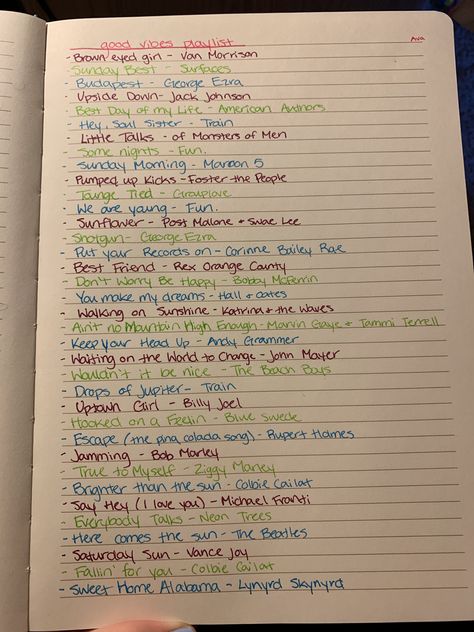 good vibes playlist
Ava
- Brown eyed girl - Van Morrison
- Sunday Best - Surfaces
- Budapest - George Ezra
- Upside Down - Jack Johnson
- Best Day of my Life - American Authors
- Hey, Soul Sister - Train
- Little Talks - of Monsters of Men
- Some nights - Fun.
- Sunday Morning - Maroon 5
- Pumped up Kicks - Foster the People
- Tounge Tied - Grouplove
- We are young - Fun.
- Sunflower - Post Malone + Swae Lee
- Shotgun - George Ezra
- Put your Records on - Corinne Bailey Rae
- Best Friend - Rex Orange County
- Don't Worry Be Happy - Bobby McFerrin
- You make my dreams - Hall + Oates
- Walking on Sunshine - Katrina + the Waves
- Ain't no Mountain High Enough - Marvin Gaye + Tammi Terrell
- Keep your Head Up - Andy Grammer
- Waiting on the World to Change - John Mayer
- Wouldn't it be nice - The Beach Boys
- Drops of Jupiter - Train
- Uptown Girl - Billy Joel
- Hooked on a Feelin - Blue Swede
- Escape (the pina colada song) - Rupert Holmes
- Jamming - Bob Marley
- True to Myself - Ziggy Marley
- Brighter than the sun - Colbie Cailat
- Say Hey (I love you) - Michael Franti
- Everybody Talks - Neon Trees
- Here comes the sun - The Beatles
- Saturday Sun - Vance Joy
- Fallin' for you - Colbie Cailat
- Sweet Home Alabama - Lynyrd Skynyrd